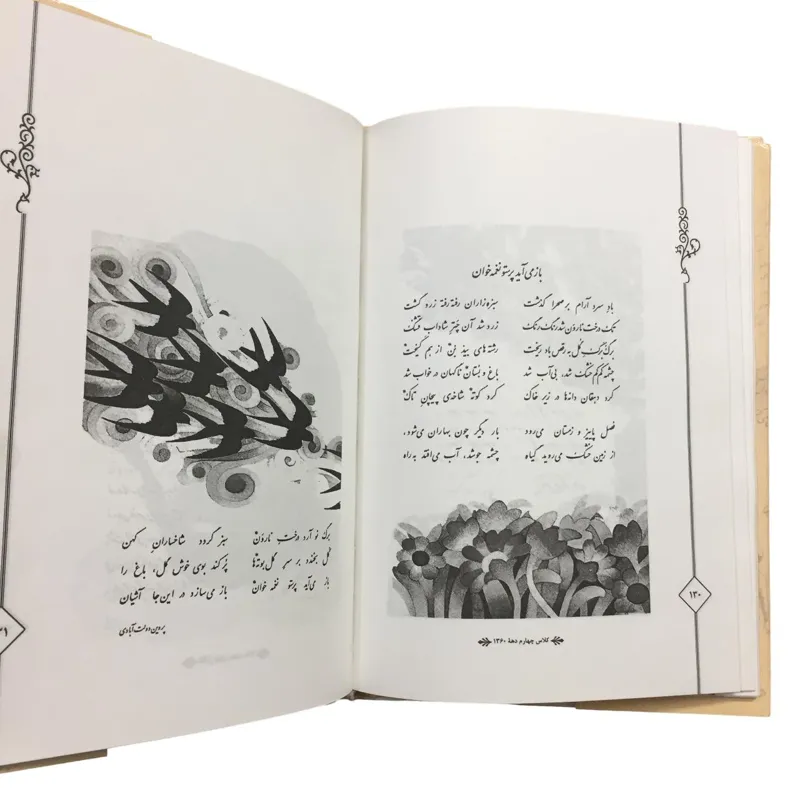 باز می‌آید پرستو نغمه‌خوان
باد سرد آرام بر صحرا گذشت سبزه‌زاران رفته‌رفته زرد گشت
تک درخت نارون شد رنگ رنگ زرد شد آن چتر شاداب قشنگ
برگ برگ گل به رقص باد ریخت رشته‌های بید بن از هم گسیخت
چشمه کم‌کم خشک شد، بی‌آب شد باغ و بستان ناگهان در خواب شد
کرد دهقان دانه‌ها در زیر خاک کرد کوته شاخه‌ی پیچان تاک
فصل پاییز و زمستان می‌رود بار دیگر چون بهاران می‌شود،
از زمین خشک می‌روید گیاه چشمه جوشد، آب می‌افتد به‌راه
کلاس چهارم دههٔ ۱۳۶۰
۱۳۰
برگ نو آرد درخت نارون سبز گردد شاخساران کهن
گل بخندد بر سر گل‌بوته‌ها پُر کند بوی خوش گل، باغ را
باز می‌آید پرستو نغمه خوان باز می‌سازد در این‌جا آشیان
پروین دولت‌آبادی
۳۱